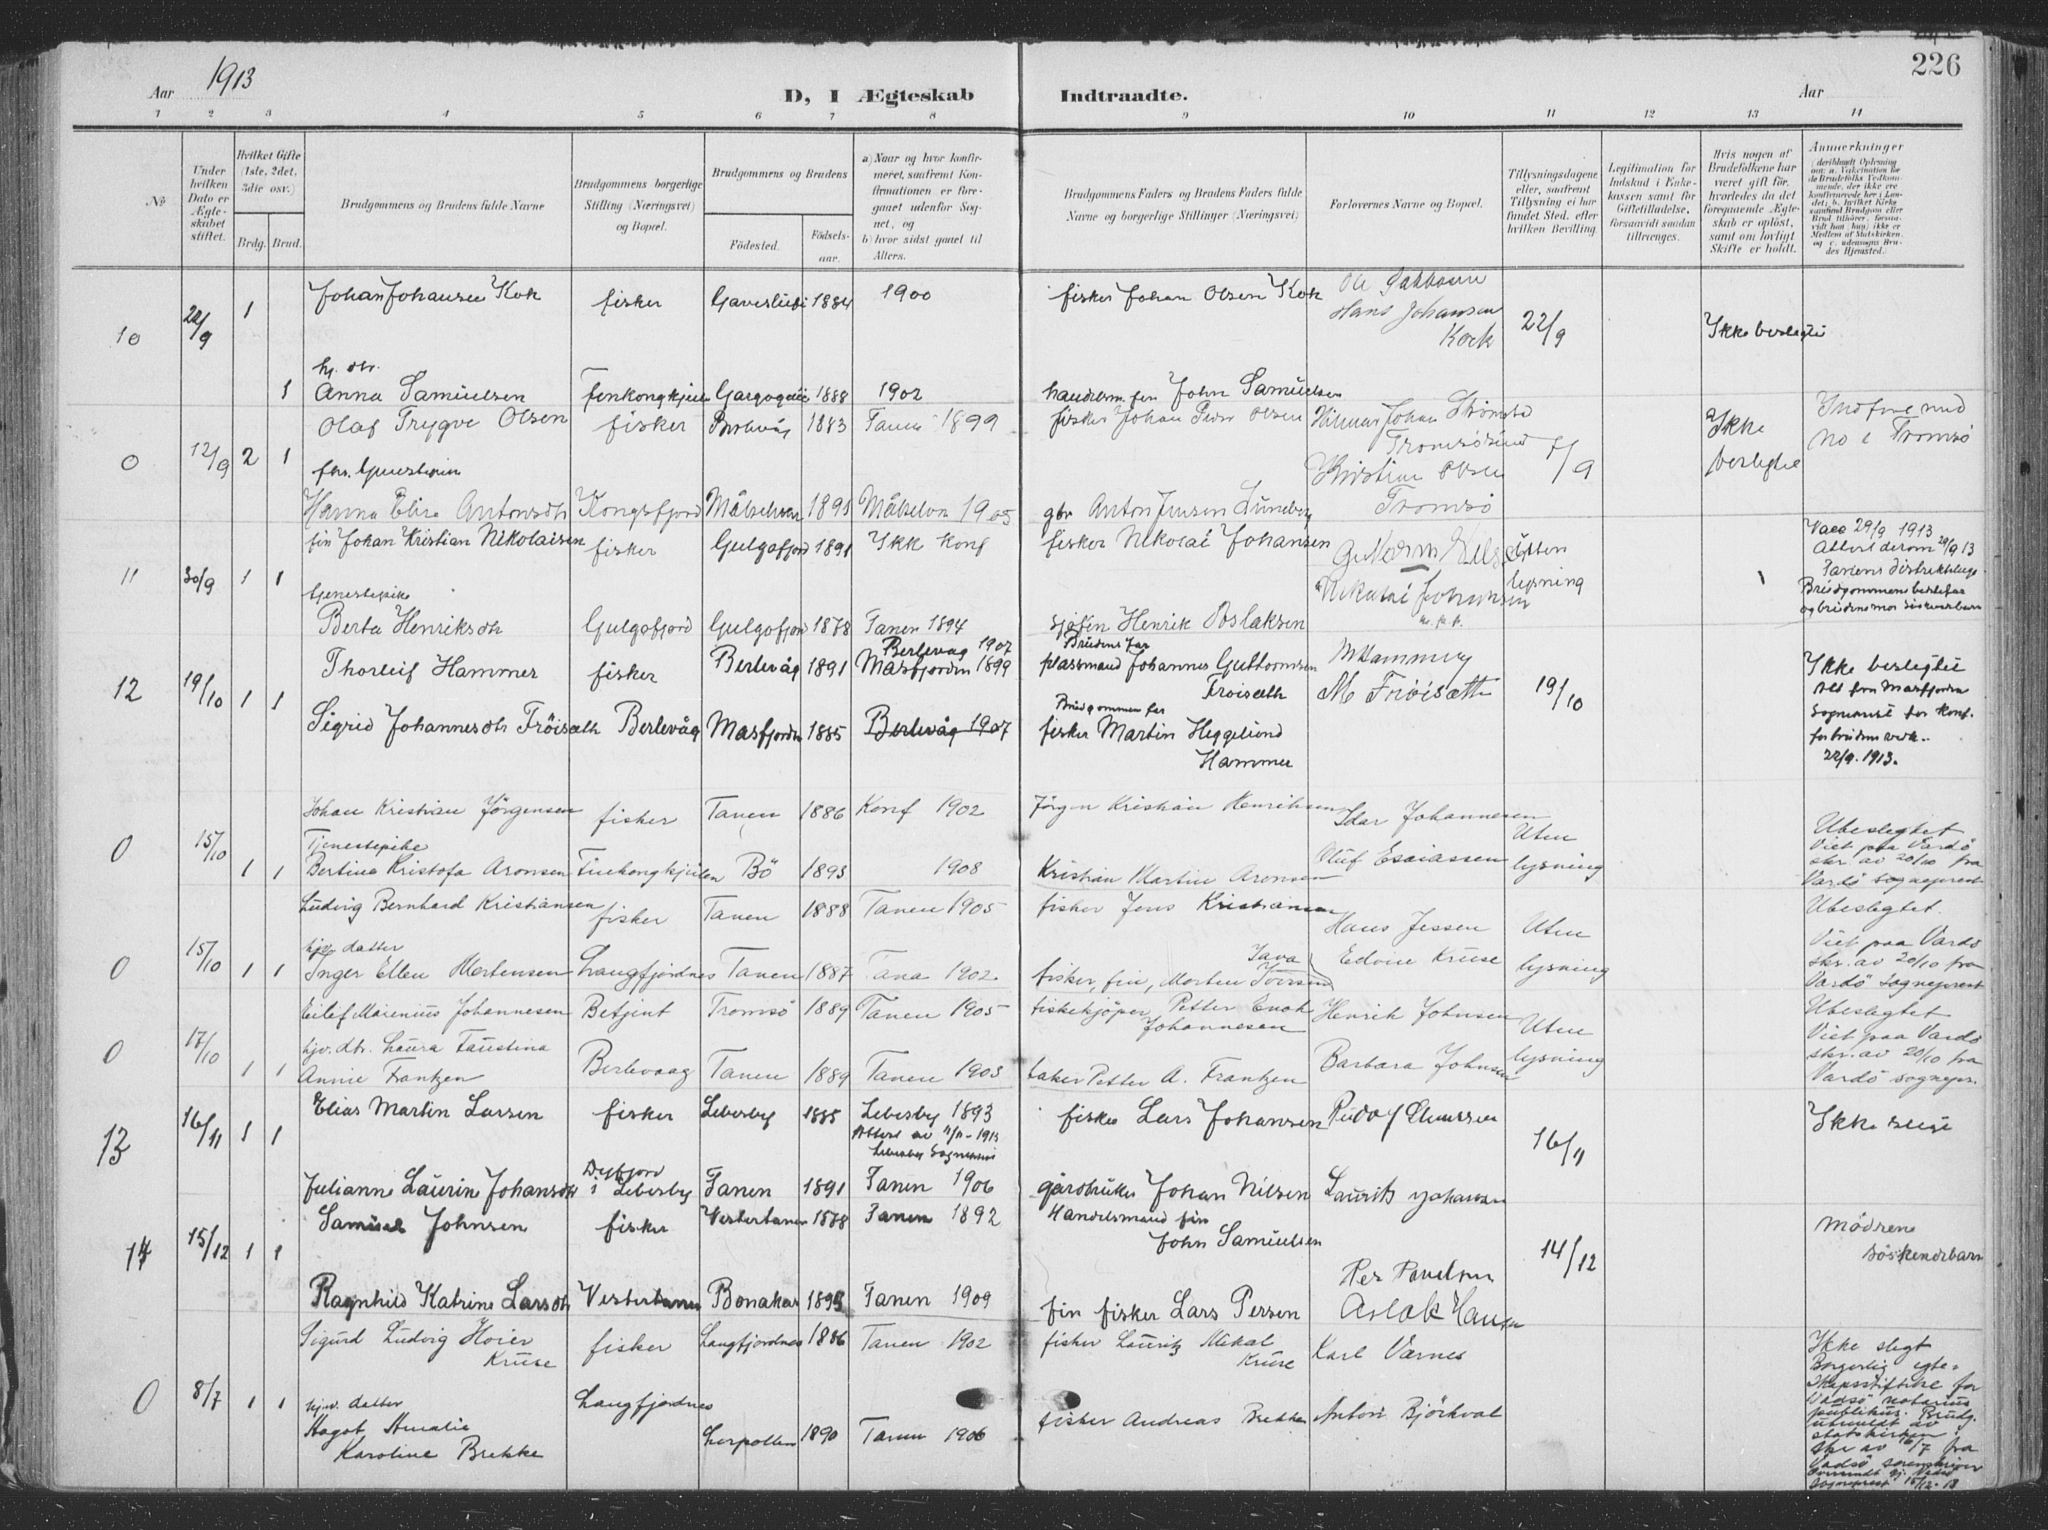 226
Aar 1913
D, I Ægteskab Indtraadte.
Aar
1 2 3 4 5 6 7 8 9 10 11 12 13 14
№
Under hvilken Dato er Ægteskabet stiftet.
Hvilket Gifte (1ste, 2det, 3die osv.)
Brdg. Brud.
Brudgommens og Brudens fulde Navne
Brudgommens borgerlige Stilling (Næringsvei) og Bopæl.
Brudgommens og Brudens
Fødested.
Fødselsaar.
a) Naar og hvor konfirmeret, saafremt Konfirmationen er foregaaet udenfor Sognet, og
b) hvor sidst gaaet til Alters.
Brudgommens Faders og Brudens Faders fulde Navne og borgerlige Stillinger (Næringsvei)
Forlovernes Navne og Bopæl.
Tillysningsdagene eller, saafremt Tillysning ei har fundet Sted, efter hvilken Bevilling.
Legitimation for Indskud i Enkekassen samt for Giftetilladelse, forsaavidt saadan tiltrænges.
Hvis nogen af Brudefolkene har været gift før, hvorledes da det foregaaende Ægteskab er opløst, samt om lovligt Skifte er holdt.
Anmærkninger
10 22/9 1 Johan Johansen Kok fisker 1884 1900 fisker Johan Olsen Kok
Hans Johansen
Kock 22/9 Ikke beslegtet
1 Anna Samuelsen 1888 1902 John Samuelsen
Olaf Trygve Olsen fisker Berlevåg 1883 Tanen 1899 fisker Johan Peder Olsen Johan
Tromsøsund
0 12/9 2 1 7/9 Ikke beslegtet
no i Tromsø
Kristine Olsen
Hanna Elise Antonsdtr Kongsfjord Målselven 1891 Målselven 1905 gbr Anton Jensen Lundberg Tromsø
fin Johan Kristian Nikolaisen fisker Gulgofjord 1891 Ikk konf fisker Nikolai Johansen
Uten lysning
11 30/9 1 1 tjenestepike
Nikolai Johansen
m.p.p.
Berta Henriksdtr Gulgofjord Gulgofjord 1878 Tanen 1894 sjøfin Henrik Aslaksen
29/9 1913
Attest derom 29/9 13
Brudgommens bestefar
og brudens mor søskenebarn
Thorleif Hammer fisker Berlevåg 1891 Berlevaag 1907
Masfjorden 1899
Brudens far
plassmand Johannes Guttormsen
Frøisæth
M Hammer
12 19/10 1 1 M Frøisæth 19/10
Sigrid Johannesdtr Frøisæth Berlevåg Masfjorden 1885 Berlevåg 1907
Brudgommens far
fisker Martin Heggelund
Hammer
Ikke beslegtet
Att fra Masfjorden
Sogneprest for konf.
22/9. 1913.
Johan Kristian Jørgensen fisker Tanen 1886 Konf 1902 Jørgen Kristian Henriksen Idar Johannesen
0 15/10 Tjenestepike Uten
1 1 Bertine Kristofa Aronsen Finkongkjeilen Bö 1893 1908 Kristian Martin Aronsen Oluf Esaiassen lysning
Ubeslegtet
Viet paa Vardö
skr. av 20/10 fra
Vardö sogneprest
Ludvig Bernhard Kristiansen fisker Tanen 1888 Tanen 1905 fisker Jens Kristiansen Hans Jessen Uten
0 15/10 hjv. datter
1 1 Inger Ellen Mortensen Langfjordnes Tanen 1887 Tana 1902 fisker, fin, Morten Iversen Edvine Kruse lysning
Ubeslegtet.
Viet paa Vardö
skr. av 20/10 fra
Vardö Sogneprest
Eilef Marenius Johannesen Betjent Tromsö 1889 Tanen 1905 fiskekjøper Petter Enok
Johannesen Henrik Johnsen Uten
0 17/10 hjv. dtr. Laura Faustina
1 1 Annie Frantzen Berlevaag Tanen 1889 Tanen 1903 baker Petter A. Frantzen Barbara Johnsen lysning
Ubeslegtet
Viet paa Vardö
skr. av 20/10 fra
Vardö sognepr.
Elias Martin Larsen fisker Lebesby 1885 Lebesby 1893
Attest av 11/11-1913
Lebesby Sogneprest
fisker Lars Johansen
13 16/11 1 1 16/11 Ikke
Julianne Laurine Johansdtr Dyfjord
i Lebesby Tanen 1891 Tanen 1906 gårdbruker Johan Nilsen Lauritz Johansen
Samuel Johnsen fisker Vestertanen 1878 Tanen 1892 Handelsmand fin
John Samuelsen
14 15/12 1 1 14/12 Mødrene
Söskendebarn
Per Paulsen
Ragnhild Katrine Larsdtr Vestertanen Bonakas 1893 Tanen 1909 fin fisker Lars Persen Aslak Hansen
Sigurd Ludvig Hoier
Kruse fisker Langfjordnes 1886 Tanen 1902 fisker Lauritz Mikal
Kruse Karl Værnes
0 8/7 1 1 hjv. datter Langfjordnes
Hagot Amalie
Karoline Brekke Lerpollen 1890 Tanen 1906 fisker Andreas Brekke Anton Björkvat
Ikke slegt
Borgerlig egteskapsstiftelse for
Vadsö notarius
publikus. Brudg.
utmeldt av
statskirken
skr av 16/7 fra
Vadsö sorenskriver